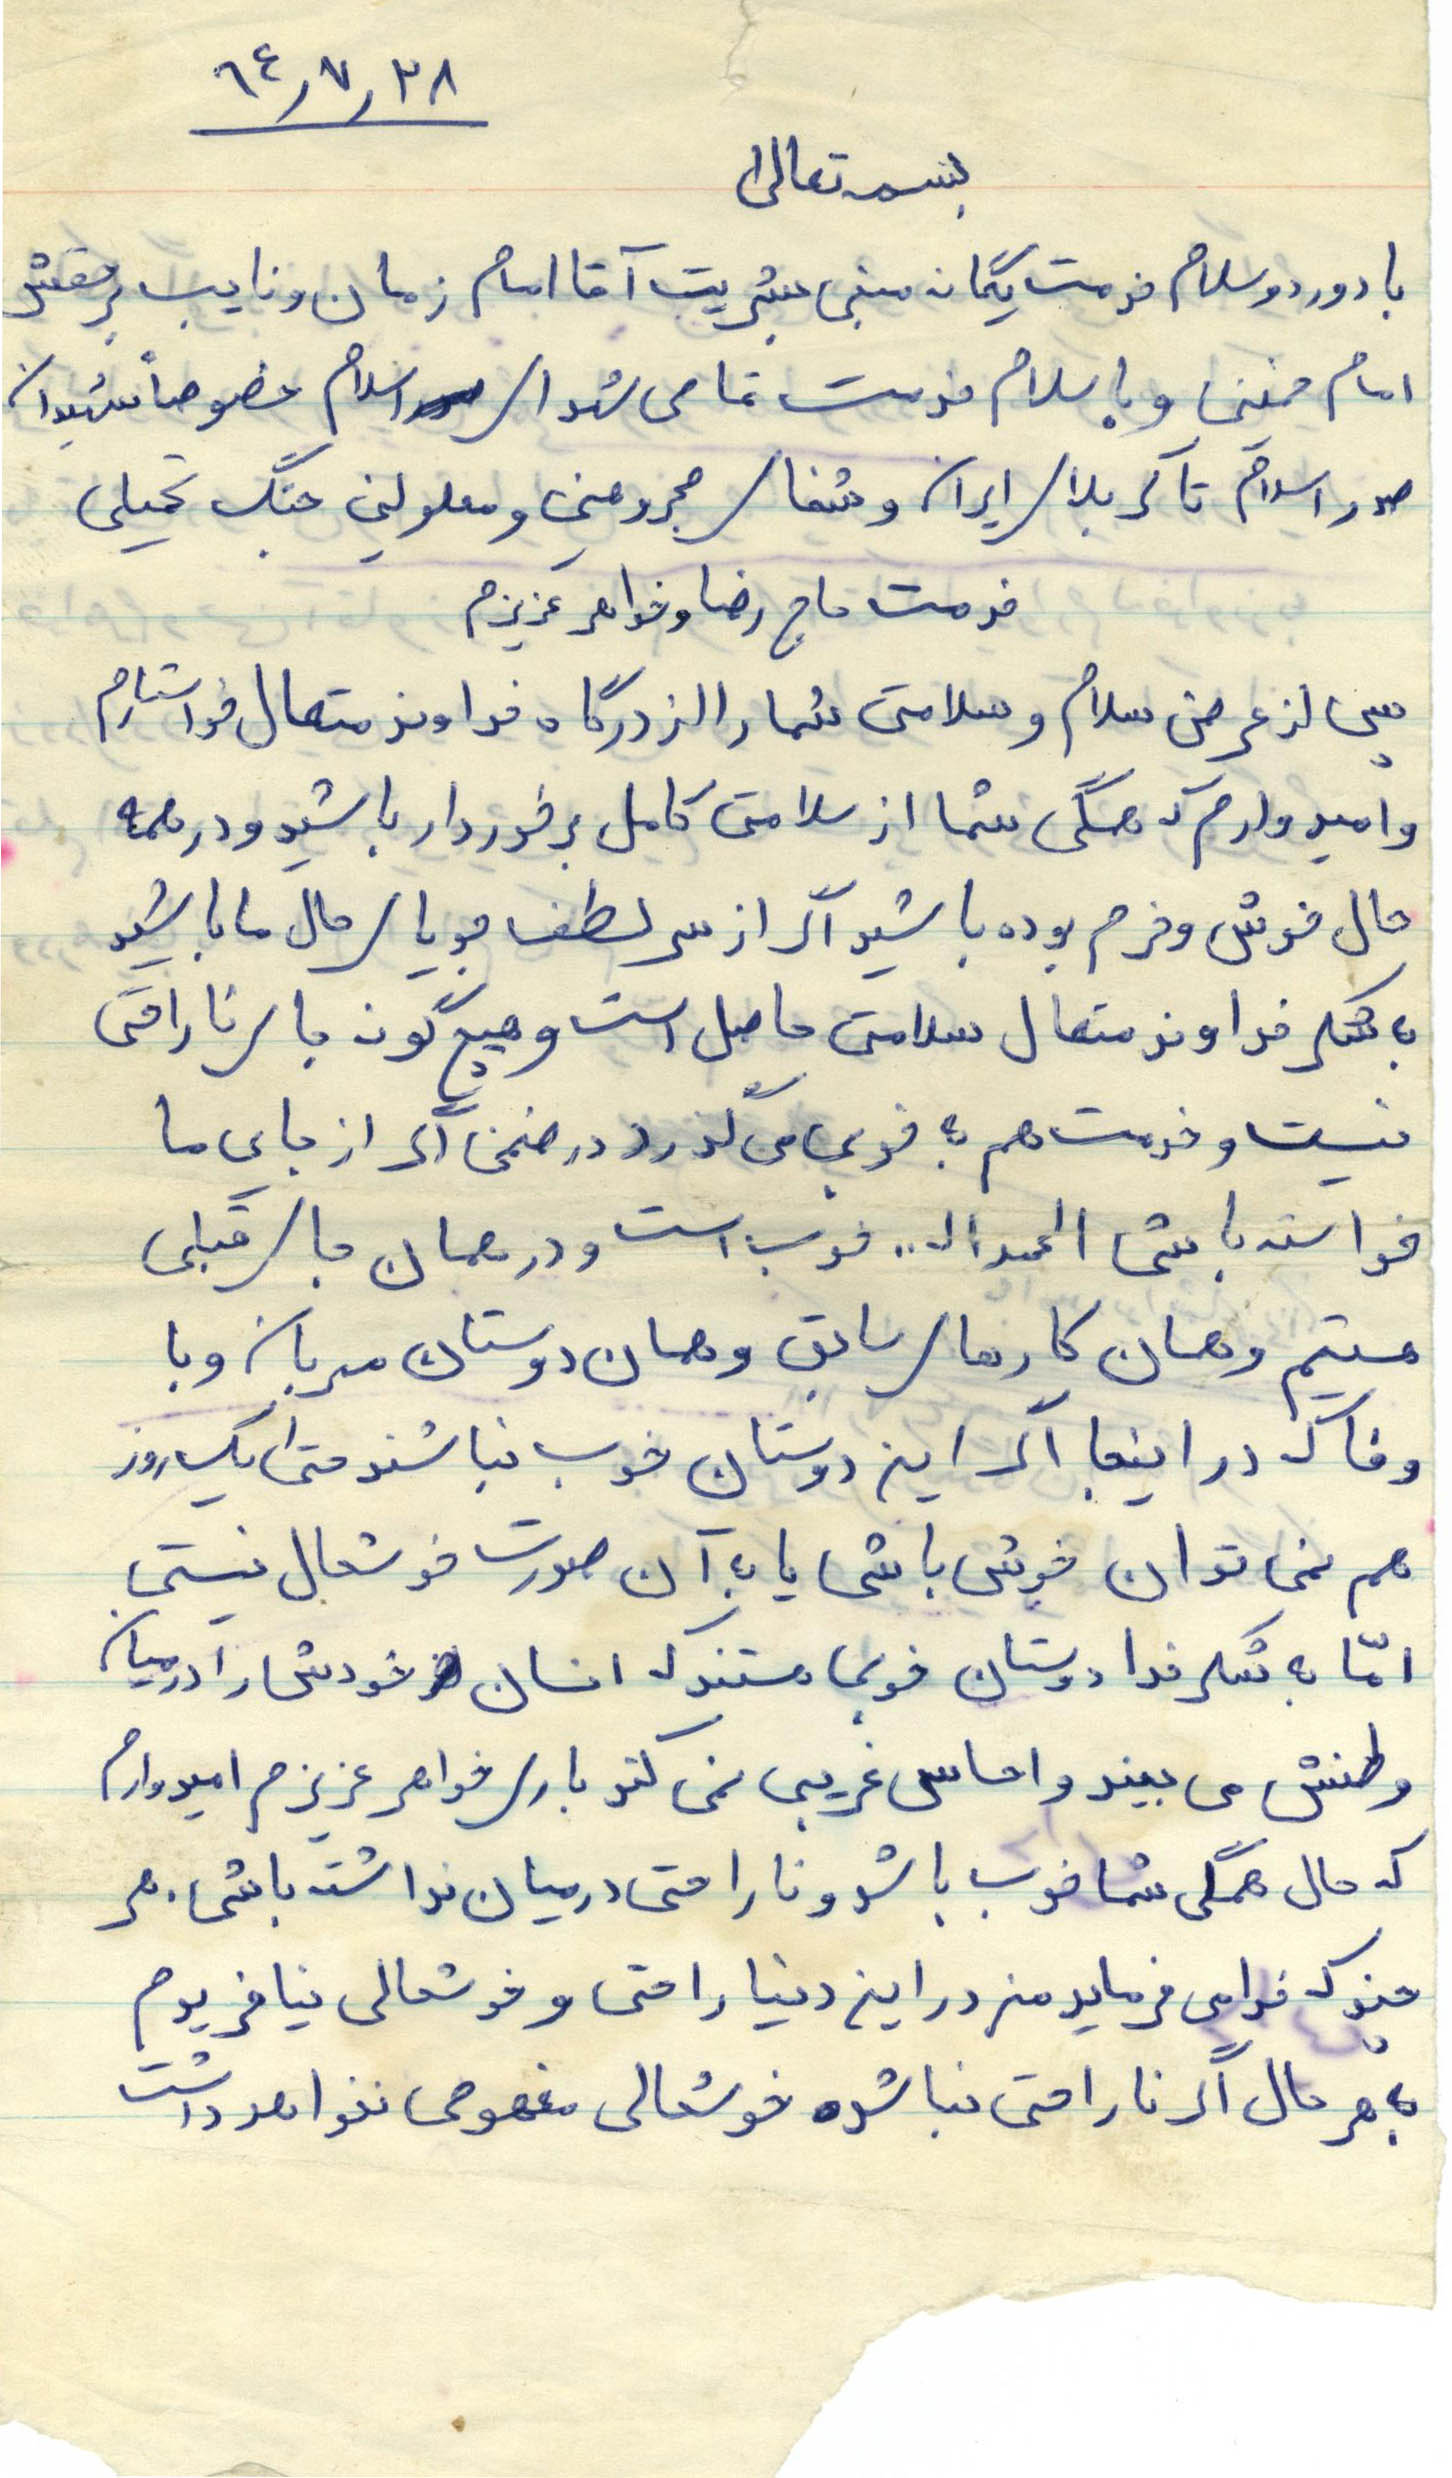 ٦٤٫٧٫٢٨
بسمه تعالی
با درود و سلام خدمت یگانه منجی بشریت آقا امام زمان و نایب برحقش
امام خمینی و با سلام خدمت تمامی شهدای اسلام خصوصاً شهیدان
صدر اسلام تا کربلای ایران و شفای مجروحین و معلولین جنگ تحمیلی
خدمت حاج رضا و خواهر عزیزم
پس از عرض سلام و سلامتی شما را از درگاه خداوند متعال خواستارم
و امیدوارم که همگی شما از سلامتی کامل برخوردار باشید و در همه
حال خوش و خرم بوده باشید اگر از سر لطف جویای حال ما باشید
به شکر خداوند متعال سلامتی حاصل است و هیچ گونه جای ناراحتی
نیست و خدمت هم به خوبی می گذرد در ضمن اگر از جای ما
خواسته باشی الحمدالله خوب است و در همان جای قبلی
هستیم و همان کارهای سابق و همان دوستان مهربان و با
وفا که در اینجا اگر این دوستان خوب نباشند حتی یک روز
هم نمی توان خوش باشی یا به آن صورت خوشحال نیستی
امّا به شکر خدا دوستان خوبی هستند که انسان خودش را در میان
وطنش می بیند و احساس غریبی نمی کند باری خواهر عزیزم امیدوارم
که حال همگی شما خوب باشد و ناراحتی در میان نداشته باشی. هر
چند که خدا می فرماید من در این دنیا راحتی و خوشحالی نیافریدم
به هر حال اگر ناراحتی نباشد خوشحالی مفهومی نخواهد داشت